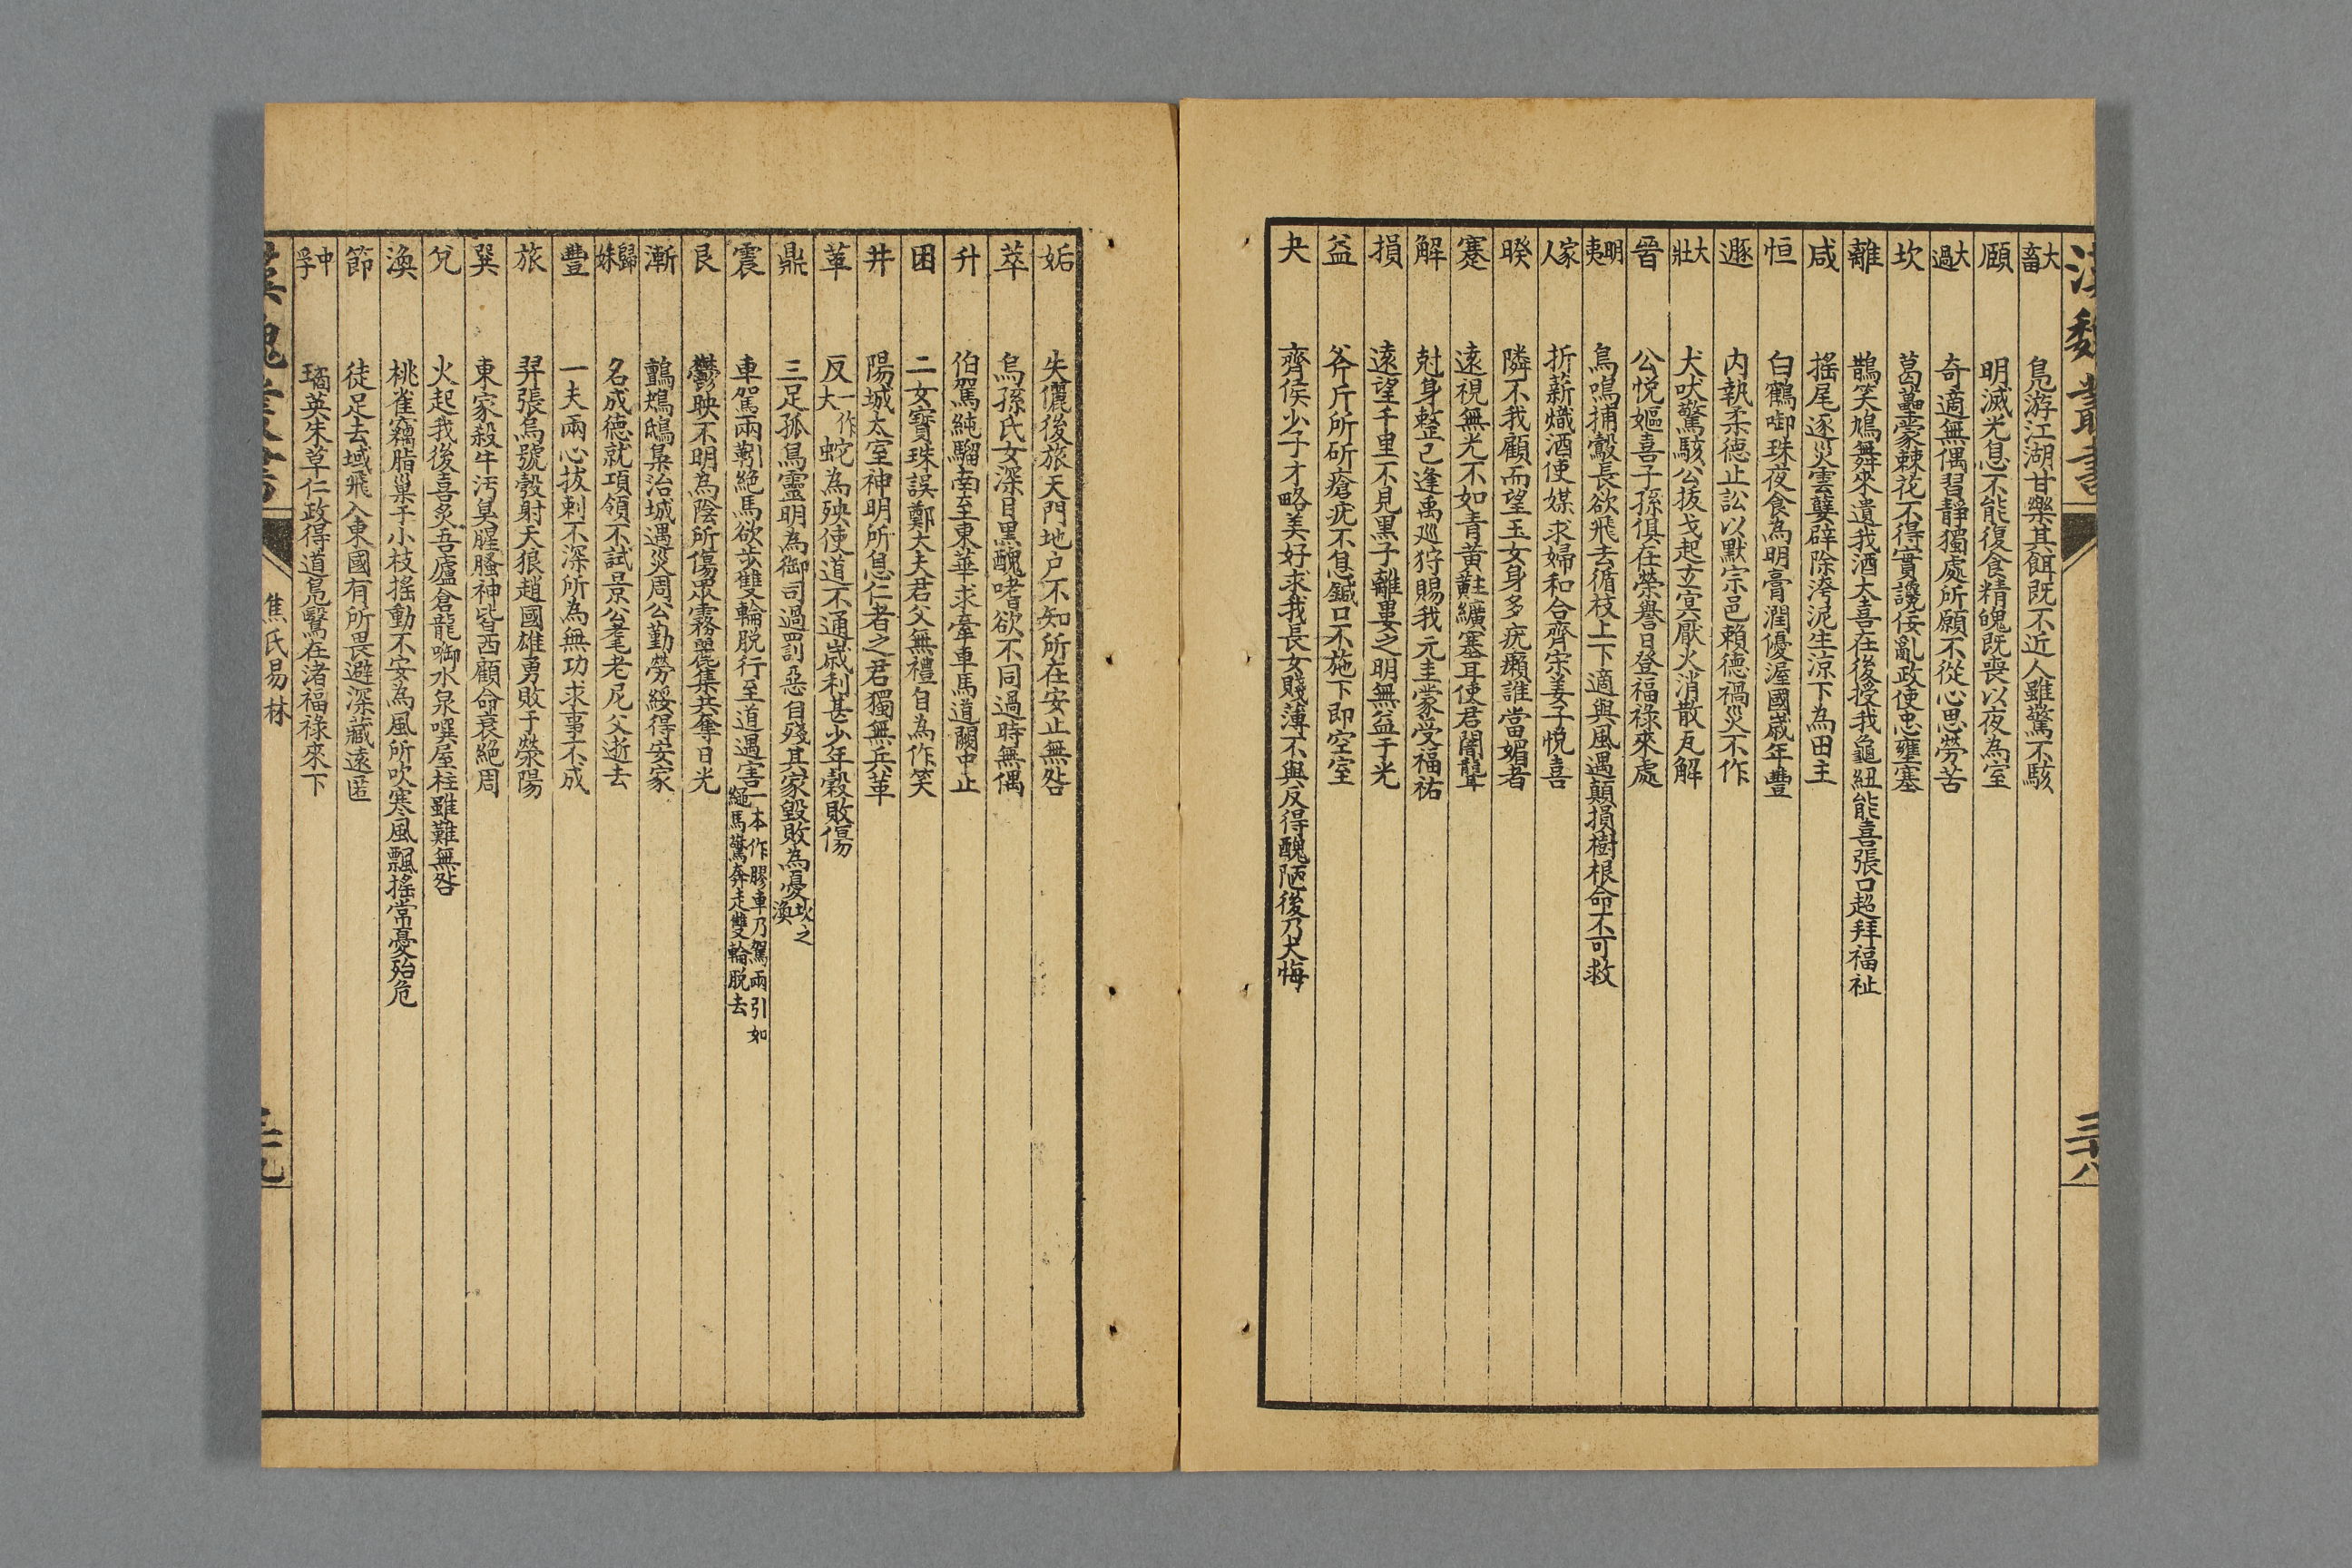 漢魏叢書 三十八
大畜 鳧游江湖甘樂其餌既不近人雖驚不駭
頤 明滅光息不能復食精魄既喪以夜為室
大過 奇適無偶習靜獨處所願不從心思勞苦
坎 葛藟蒙棘花不得實讒佞亂政使恩壅塞
離 鵲笑鳩舞來遺我酒大喜在後授我龜紐能喜張口起拜福祉
咸 搖尾逐災雲孽辟除洿泥生涼下為田主
恒 白鶴啣珠夜食為明膏潤優渥國歲年豐
遯 內執柔德止訟以默宗邑賴德禍災不作
大壯 犬吠驚駭公拔戈起玄冥厭火消散瓦解
晉 公悅嫗喜子孫俱在榮譽日登福祿來處
明夷 鳥鳴捕鷇長欲飛去循枝上下適與風遇顛損樹根命不可救
家人 折薪熾酒使媒求婦和合齊宋姜子悅喜
睽 隣不我顧而望玉女身多疣癩誰當媚者
蹇 遠視無光不如青黃黈纊塞耳使君闇聾
解 尅身整己逢禹巡狩賜我元圭蒙受福祐
損 遠望千里不見黑子離婁之明無益于光
益 斧斤所斫瘡疣不息鍼口不施下即空室
夬 齊侯少子才略美好求我長女賤薄不與反得醜陋後乃大悔
姤 失儷後旅天門地户不知所在安止無咎
萃 烏孫氏女深目黑醜嗜欲不同過時無偶
升 伯駕純騮南至東華求牽車馬道闕中止
困 二女寶珠誤鄭大夫君父無禮自為作笑
井 陽城太室神明所息仁者之君獨無兵革
革 反一作大蛇為殃使道不通歲利甚少年穀敗傷
鼎 三足孤烏靈明為御司過罰惡自殘其家毀敗為憂坎之渙
震 車駕兩靷絕馬欲步雙輪脫行至道遇害一本作膠車乃駕兩引如繩馬驚奔走雙輪脫去
艮 鬱映不明為陰所傷眾霧麗集共奪日光
漸 鸇鳩鴟梟治城遇災周公勤勞綏得安家
歸妹 名成德就項領不試景公耄老尼父逝去
豐 一夫兩心拔刺不深所為無功求事不成
旅 羿張烏號彀射天狼趙國雄勇敗于滎陽
巽 東家殺牛污臭腥臊神皆西顧命衰絕周
兌 火起我後喜炙吾廬倉龍啣水泉噀屋柱雖難無咎
渙 桃雀竊脂巢于小枝搖動不安為風所吹寒風飄搖常憂殆危
節 徒足去域飛入東國有所畏避深藏遠匿
中孚 璚英朱草仁政得道鳧鷖在渚福祿來下
漢魏叢書 焦氏易林 三十九